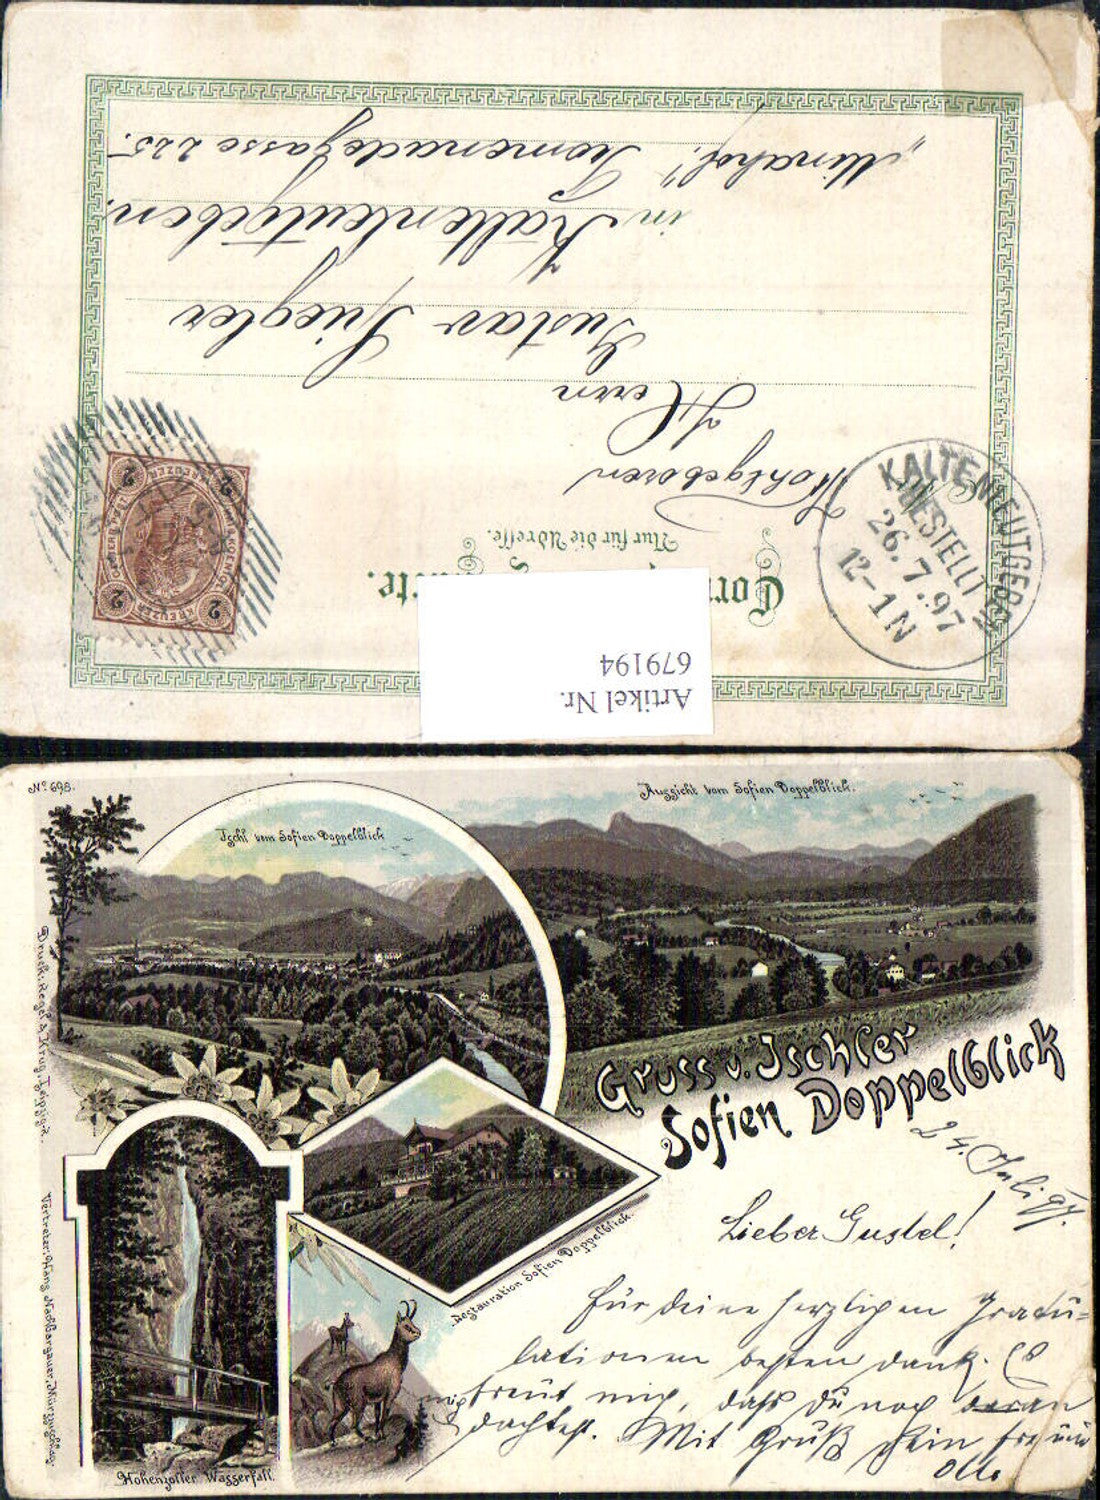 Correspondenz-Karte.
Nur für die Adresse.
Artikel Nr.
679194
KALTENLEUTGEBEN
BESTELLT
26.7.97
12-1N
2 KREUZER 2
Wohlgeboren
Herrn
Gustav Spiegler
in Kaltenleutgeben.
"Minahof", Promenadegasse 225.
No. 698.
Ischl vom Sofien Doppelblick
Aussicht vom Sofien Doppelblick.
Gruss v. Ischler
Sofien Doppelblick
Restauration Sofien Doppelblick.
Hohenzoller Wasserfall.
Druck: Regel & Krug, Leipzig-R.
Vertreter: Hans Nachbargauer, Mürzzuschlag.
24. Juli 97.
Lieber Gustel!
Für deine herzlichen Gratu-
lationen besten Dank. Es
freut mich, dass du noch daran
dachtest. Mit Gruß Dein Freund
Otto